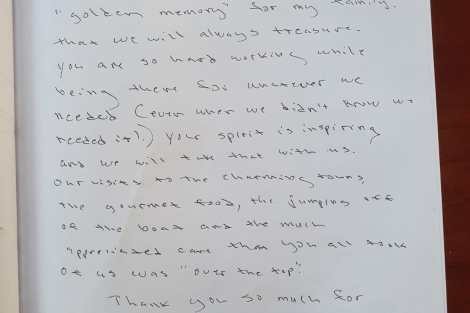 "golden memory" for my family.
that we will always treasure.
you are so hard working while
being there for whatever we
needed (even when we didn't know we
needed it!.) your spirit is inspiring
and we will take that with us.
Our visits to the charming towns,
the gourmet food, the jumping off
of the boat and the much
appreciated care that you all took
of us was "over the top".
Thank you so much for